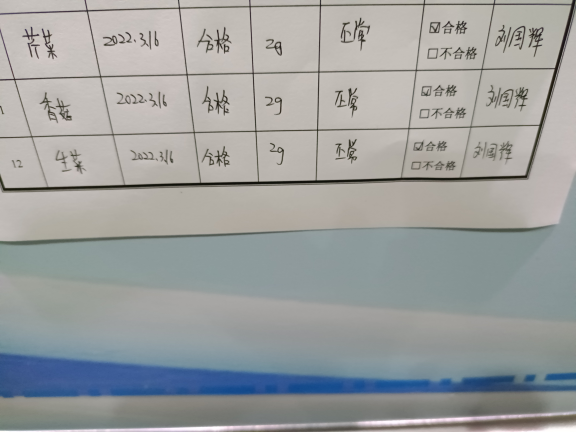 芹菜 2022.3.16 合格 2g 正常 ☑合格
□不合格 刘国辉
1 香菇 2022.3.16 合格 2g 正常 ☑合格
□不合格 刘国辉
12 生菜 2022.3.16 合格 2g 正常 ☑合格
□不合格 刘国辉